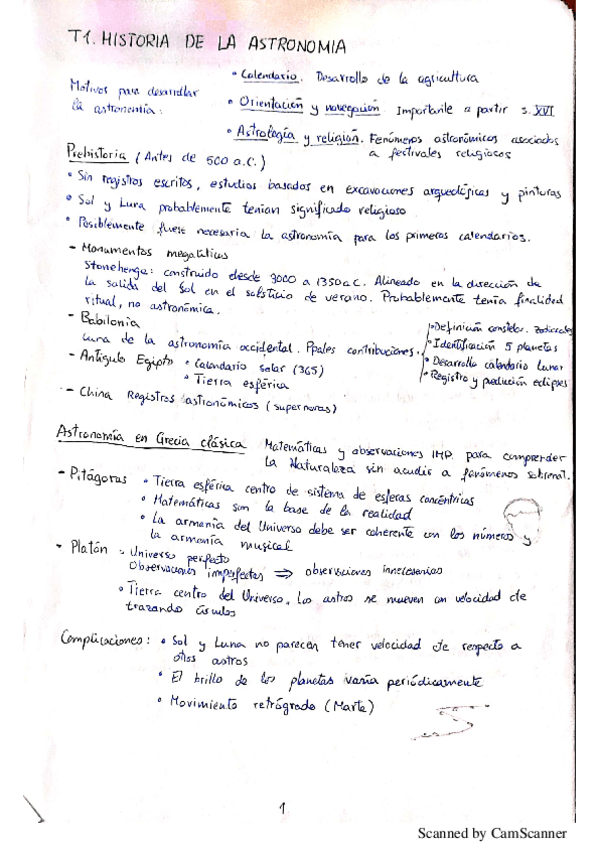 T1. HISTORIA DE LA ASTRONOMIA
Motivos para desarrollar
la astronomía:
• Calendario. Desarrollo de la agricultura
• Orientación y navegación. Importante a partir s. XVI
• Astrología y religión. Fenómenos astronómicos asociados
a festivales religiosos
Prehistoria (Antes de 500 a.C.)
• Sin registros escritos, estudios basados en excavaciones arqueológicas y pinturas
• Sol y Luna probablemente tenían significado religioso
• Posiblemente fuese necesaria la astronomía para los primeros calendarios.
- Monumentos megalíticos
Stonehenge: construido desde 3000 a 1350 a.C. Alineado en la dirección de
la salida del Sol en el solsticio de verano. Probablemente tenía finalidad
ritual, no astronómica.
- Babilonia
Cuna de la astronomía occidental. Ppales contribuciones.
• Definición constelac. zodiacales
• Identificación 5 planetas
• Desarrollo calendario lunar
• Registro y predicción eclipses
- Antiguo Egipto • Calendario solar (365)
• Tierra esférica
- China Registros astronómicos (supernovas)
Astronomía en Grecia clásica Matemáticas y observaciones IMP. para comprender
la Naturaleza sin acudir a fenómenos sobrenat.
- Pitágoras • Tierra esférica centro de sistema de esferas concéntricas
• Matemáticas son la base de la realidad
• La armonía del Universo debe ser coherente con los números y
la armonía musical
- Platón • Universo perfecto
Observaciones imperfectas ⇒ observaciones innecesarias
• Tierra centro del Universo. Los astros se mueven con velocidad cte
trazando círculos
Complicaciones: • Sol y Luna no parecen tener velocidad cte respecto a
otros astros
• El brillo de los planetas varía periódicamente
• Movimiento retrógrado (Marte)
1
Scanned by CamScanner